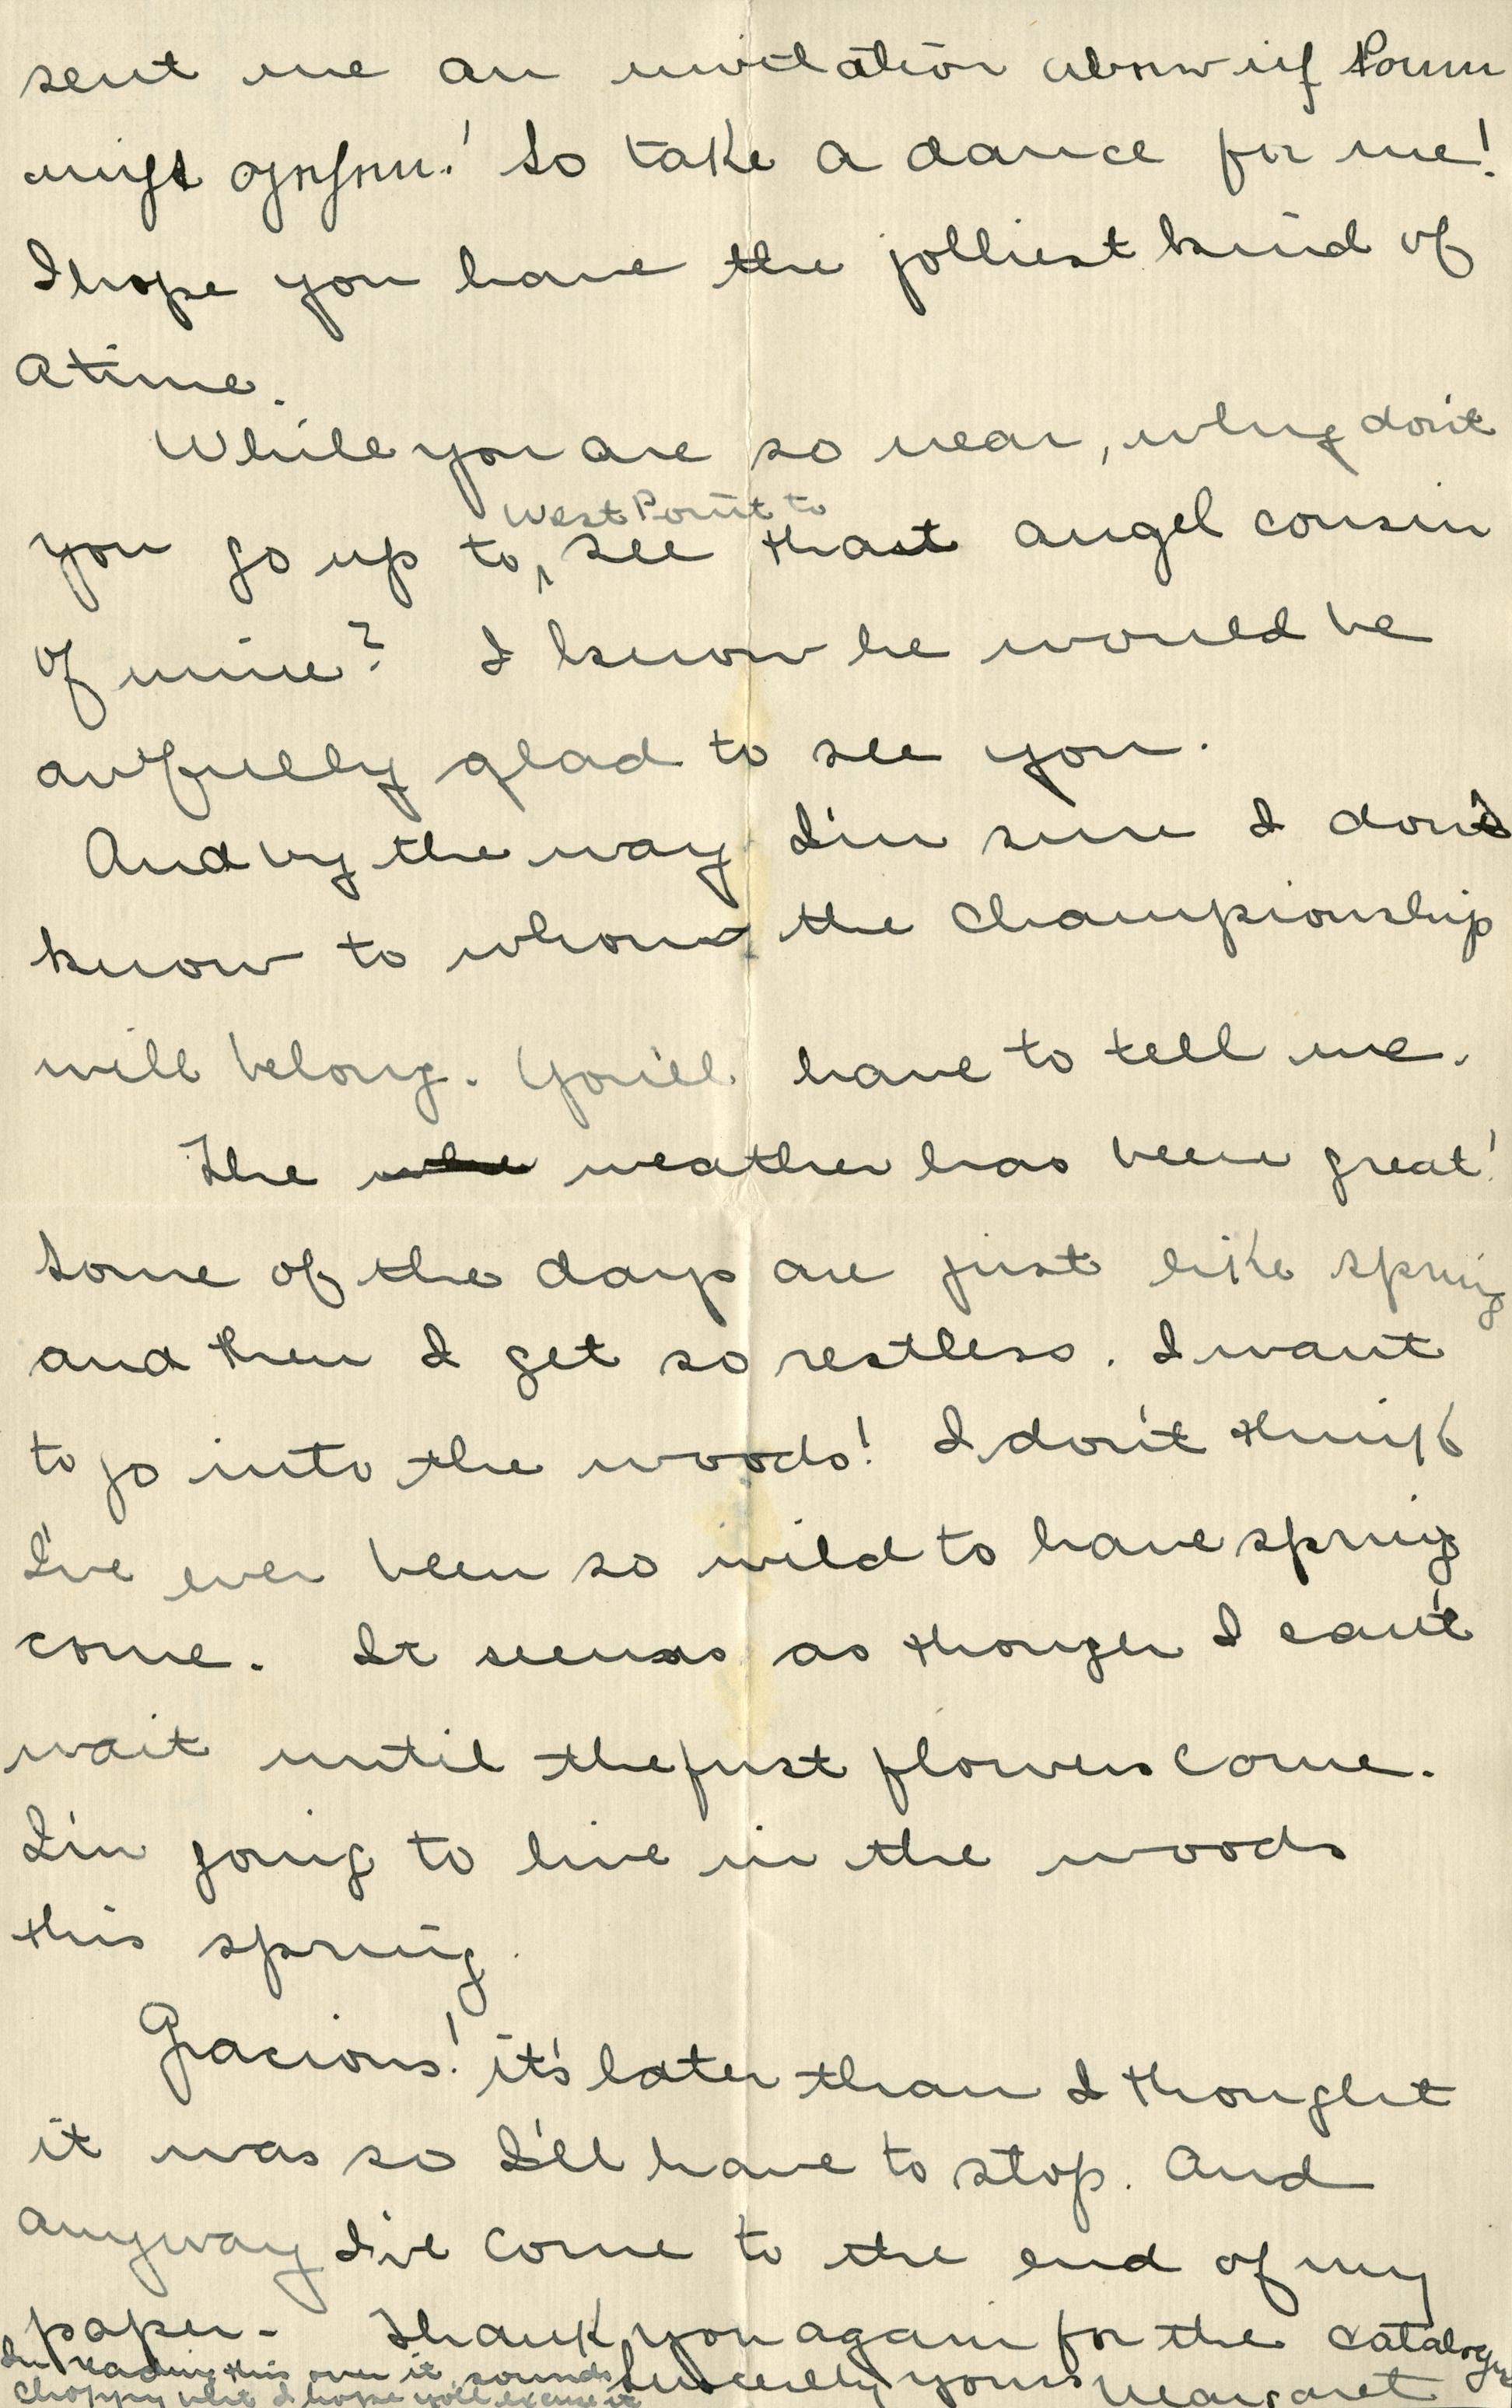 sent me an invitation
So take a dance for me!
I hope you have the jolliest kind of
a time.
While you are so near, why don't
West Point to
you go up to, see that angel cousin
of mine? I know he would be
awfully glad to see you.
And by the way I'm sure I don't
know to whom the championship
will belong. You'll have to tell me.
The weather has been great!
Some of the days are just like spring
and then I get so restless. I want
to go into the woods! I don't think
I've ever been so wild to have spring
come. It seems as though I can't
wait until the first flowers come.
I'm going to live in the woods
this spring.
Gracious! it's later than I thought
it was so I'll have to stop. And
anyway I've come to the end of my
paper- Thank you again for the catalogue
Sincerely yours Margaret
In reading this over it sounds
choppy but I hope you'll excuse it